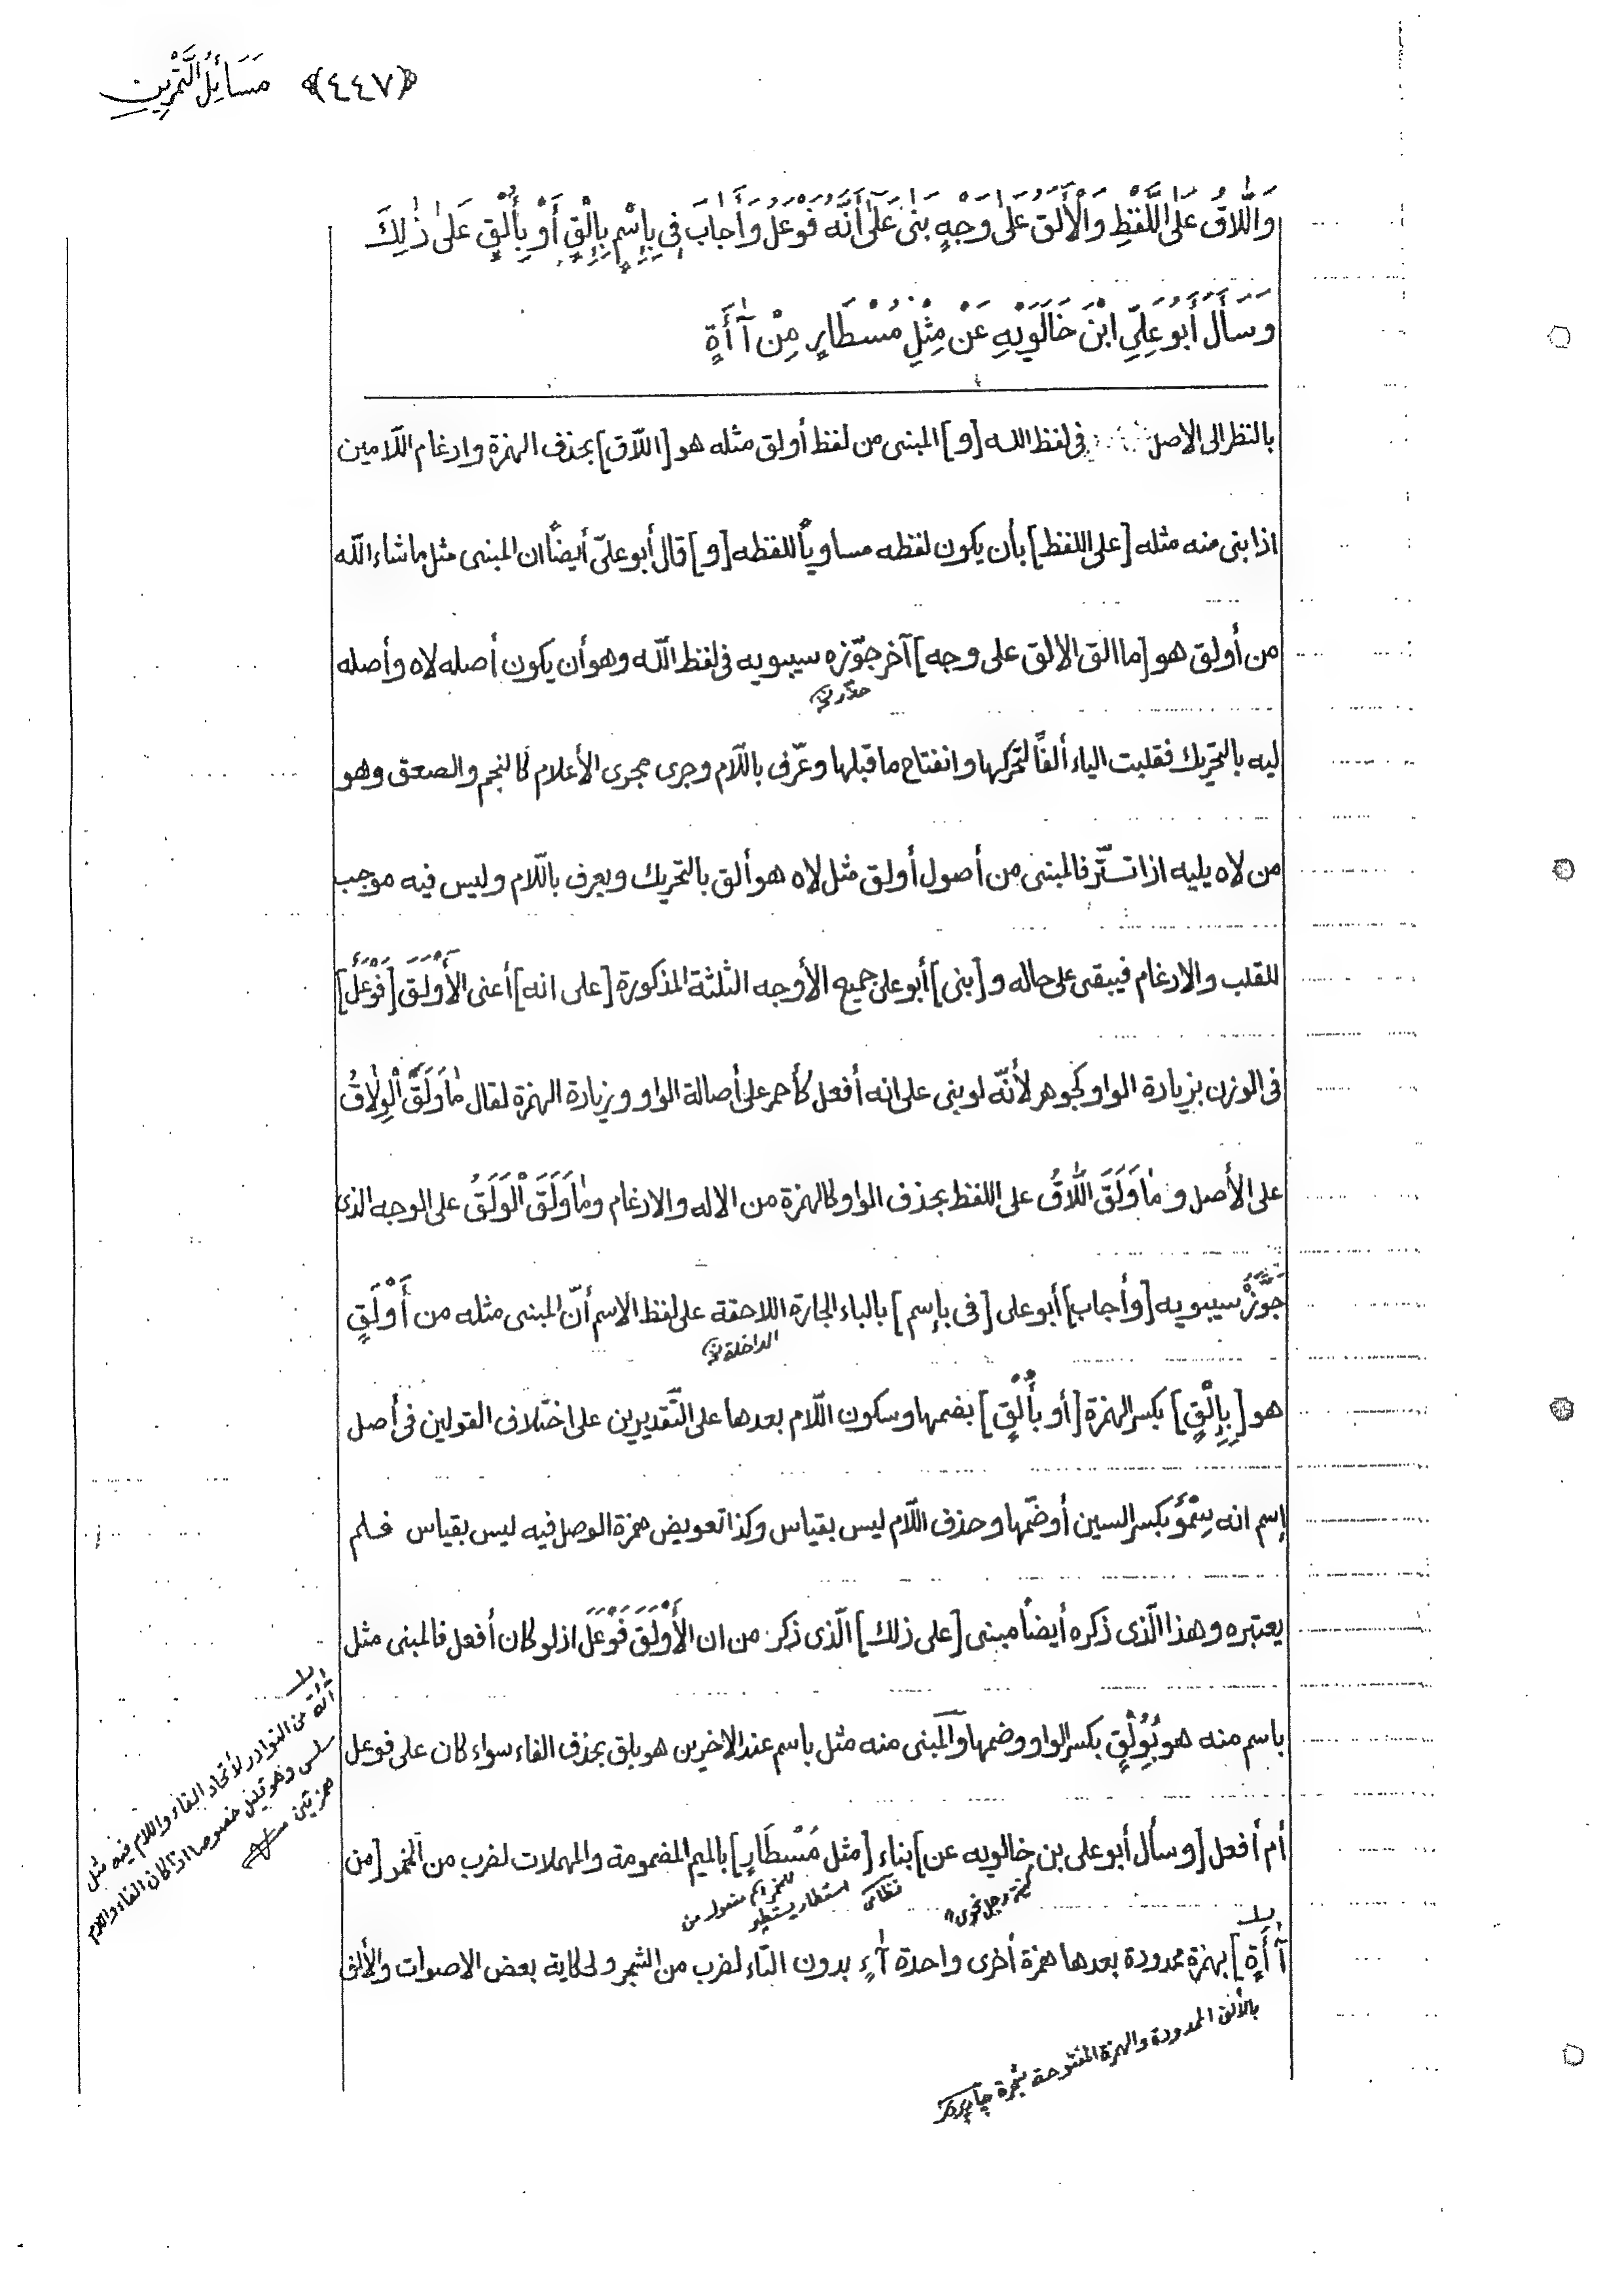 ﴿٤٤٧﴾ مَسَائِلُ التَّمْرِينِ
وَاللَّاقُ عَلَى اللَّفْظِ وَالْأَلَقُ عَلَى وَجْهٍ بَنَى عَلَى أَنَّهُ فَوْعَلٌ وَأَجَابَ فِي بِاِسْمٍ بِإِلْقٍ أَوْ بِأُلْقٍ عَلَى ذٰلِكَ
وَسَأَلَ أَبُو عَلِيٍّ ابْنَ خَالَوَيْهِ عَنْ مِثْلِ مُسْطَارٍ مِنْ آأَةٍ
بالنظر الى الاصل في لفظ الله [و] المبنى من لفظ أولق مثله هو [اللّاق] بحذف الهمزة وادغام اللّامين
اذا بنى منه مثله [على اللفظ] بأن يكون لفظه مساوياً للفظه [و] قال أبو علىّ أيضاً ان المبنى مثل ما شاء اللّه
من أولق هو [ما الق الالق على وجه] آخر جوّزه سيبويه فى لفظ اللّه وهو أن يكون أصله لاه وأصله
ليه بالتحريك فقلبت الياء ألفاً لتحركها وانفتاح ما قبلها وعرّف باللّام وجرى مجرى الأعلام كالنجم والصعق وهو
من لاه يليه اذا تستّر فالمبنى من أصول أولق مثل لاه هو ألق بالتحريك ويعرف باللّام وليس فيه موجب
للقلب والادغام فيبقى على حاله و [بنى] أبو على جميع الأوجه الثلثة المذكورة [على انه] أعنى الأَوْلَقَ [فَوْعَلٌ]
فى الوزن بزيادة الواو كجوهر لأنّه لو بنى على انه أفعل كأحمر على أصالة الواو وزيادة الهمزة لقال مٰا وَلَقَ الْوِلٰاقُ
على الأصل و مٰا وَلَقَ اللّٰاقُ على اللفظ بحذف الواو كالهمزة من الاله والادغام ومٰا وَلَقَ الْوَلَقُ على الوجه الذى
جَوَّزَهُ سيبويه [وأجاب] أبو على [فى بإسم] بالباء الجارة اللاحقة على لفظ الاسم أنّ المبنى مثله من أَوْلَقٍ
الداخلة
هو [بِإِلْقٍ] بكسر الهمزة [أو بأُلْقٍ] بضمها وسكون اللّام بعدها على التّقديرين على اختلاف القولين فى أصل
إسم انه سِمْوٌ بكسر السين أو ضمّها وحذف اللّام ليس بقياس وكذا تعويض همزة الوصل فيه ليس بقياس فلم
يعتبره وهذا الّذى ذكره أيضاً مبنى [على ذلك] الّذى ذكر من ان الأَوْلَقَ فَوْعَلٌ اذ لو كان أفعل فالمبنى مثل
باسم منه هو بُوِلْقٍ بكسر الواو وضمها والمبنى منه مثل باسم عند الاخرين هو بلق بحذف الفاء سواء كان على فوعل
أم أفعل [وسأل أبو على بن خالويه عن] بناء [مثل مُسْطَارٍ] بالميم المضمومة والمهملات لضرب من الخمر [من
كنية رجل نحوى
نظام
استطار يستطير
للخمر اسم مفعول من
آأَةٍ] بهمزة ممدودة بعدها همزة أخرى واحدة آٰءٍ بدون التاء لضرب من الشجر ولحكاية بعض الاصوات والألف
بالألف الممدودة والهمزة المفتوحة شجرة
آئة من النوادر لأتحاد الفاء واللام فيه مثل
سلس وهو قليل خصوصا اذا كان الفاء واللام
همزتين